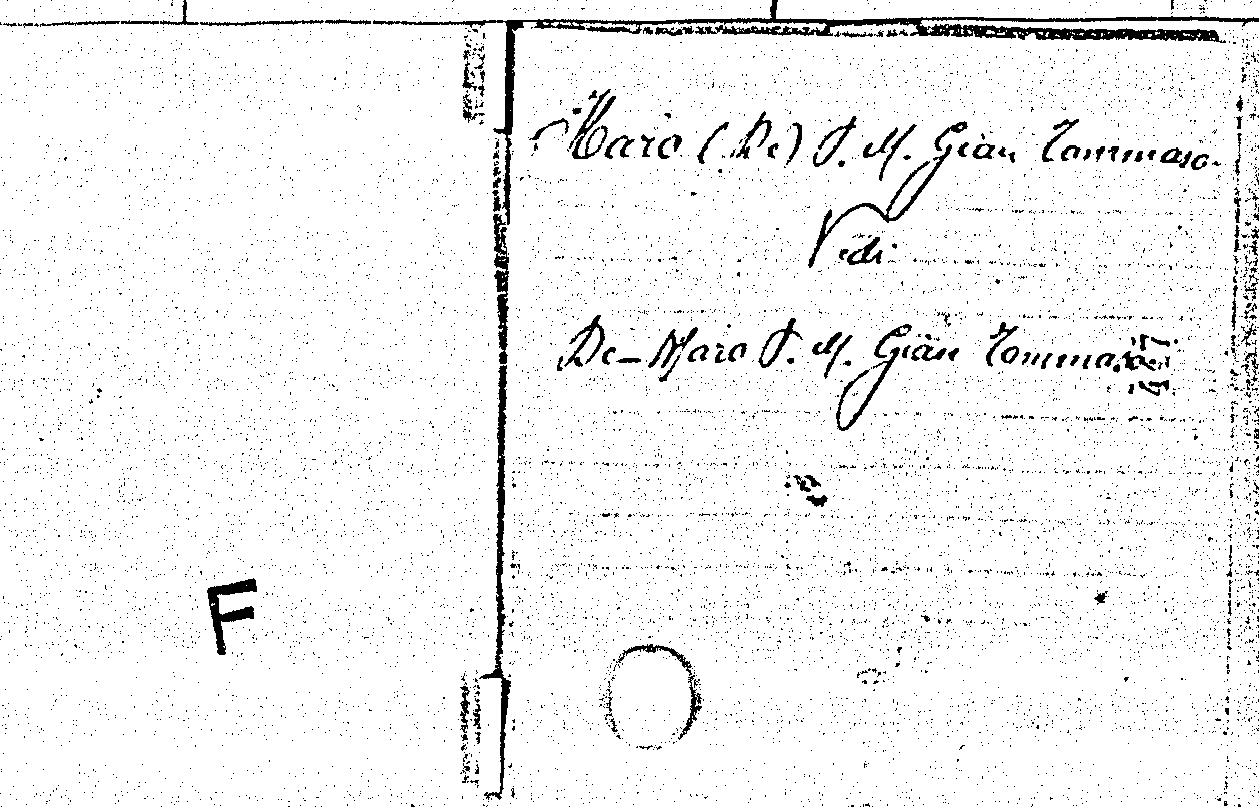 Maro (De) P. M. Gian Tommaso.
Vedi
De-Maro P. M. Gian Tommaso
F